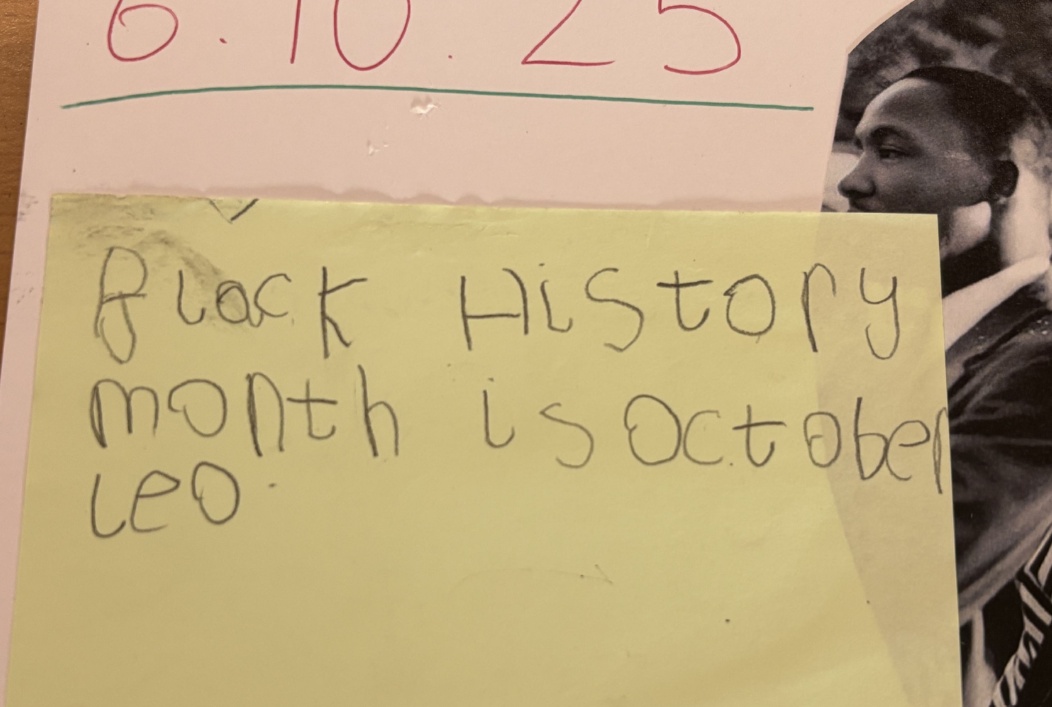 6.10.25
Black History
month is October
Leo.